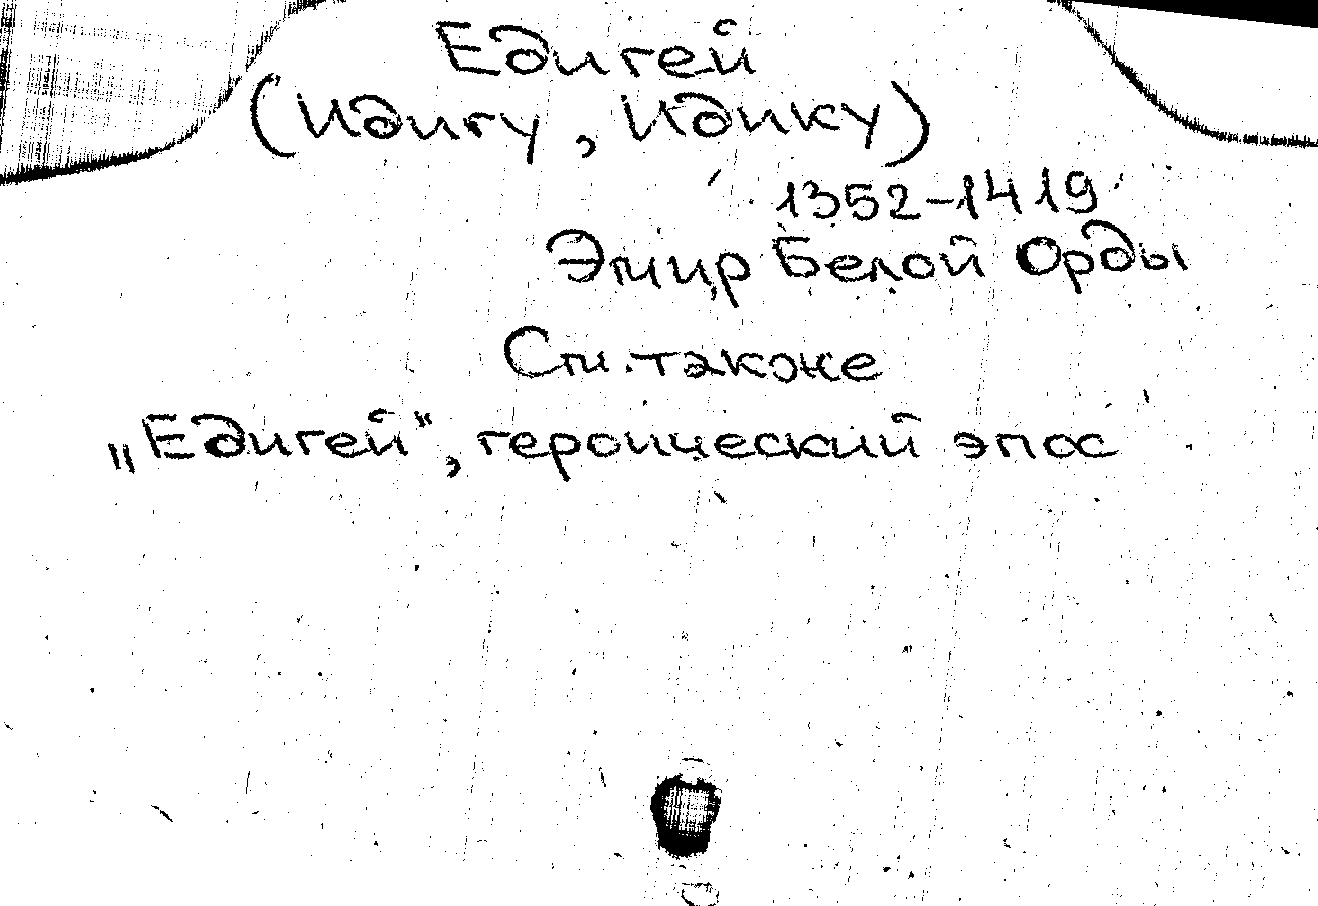 Едигей
(Идигу, Идику)
1352-1419
Эмир Белой Орды
См. также
„Едигей“, героический эпос